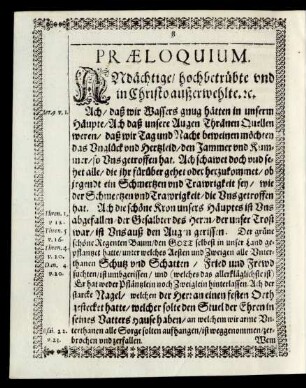 8
PRÆLOQUIUM.
ANdächtige/ hochbetrübte vnd
in Christo außerwehlte. ꝛc.
Ach/ daß wir Wassers gnug hätten in unserm
Häupte/ Ach daß unsere Augen Thränen Quellen
weren/ daß wir Tag und Nacht beweinen möchten
das Unglück und Hertzleid/ den Jammer und Kum-
mer/ so Uns getroffen hat. Ach schawet doch und se-
het alle/ die ihr fürüber gehet oder herzukommet/ ob
irgendt ein Schmertzen und Trawrigkeit sey/ wie
der Schmertzen und Trawrigkeit/ die Uns getroffen
hat. Ach die schöne Kron unsers Häuptes ist Uns
abgefallen der Gesalbter des Herrn/ der unser Trost
war/ ist Uns auß den Augen gerissen. Der grüne
schöne Regenten Baum/ den GOTT selbst in unser Land ge-
pflantzet hatte/ unter welches Aesten und Zweigen alle Unter-
thanen Schutz und Schatten/ Fried und Frewd
suchten/ ist umbgerissen/ und (welches das allerkläglichste ist)
Er hat weder Pfläntzlein noch Zweiglein hinterlassen. Ach der
starcke Nagel/ welchen der Herr an einen festen Orth
gestecket hatte/ welcher solte den Stuel der Ehren in
seines Vatters Hause haben/ an welchem wir arme Un-
terthanen alle Sorge solten aufhangen/ ist weggenommen/ zer-
brochen und zerfallen.
Wem
Thren. 1.
v. 12.
Thren. 5.
v. 16.
Thren. 4.
v. 20.
Dan. 4.
v. 20.
Esai. 22.
v. 23.